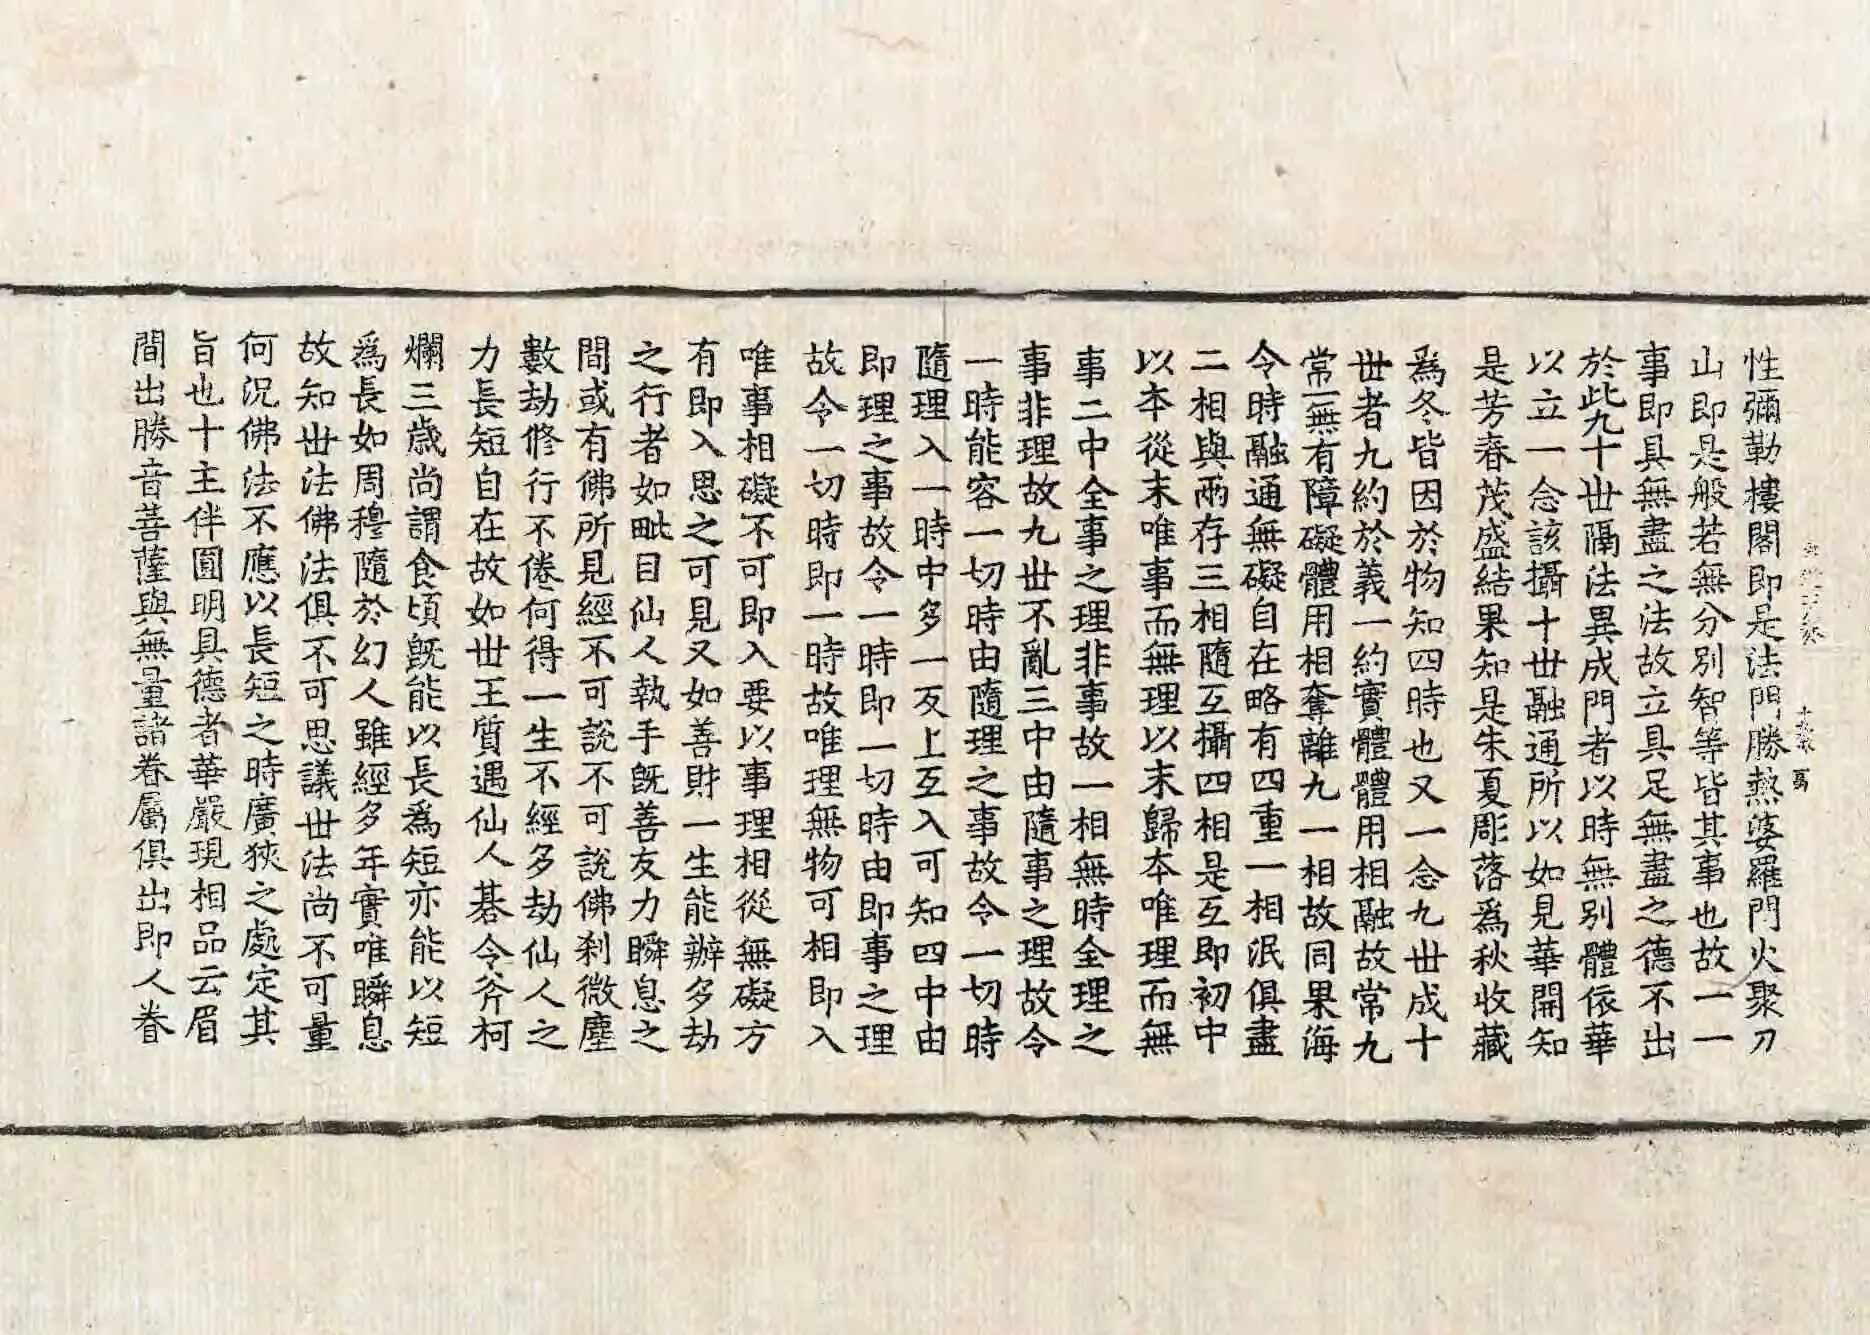 性彌勒樓閣即是法門勝熱婆羅門火聚刀
山即是般若無分別智等皆其事也故一一
事即具無盡之法故立具足無盡之德不出
於此九十世隔法異成門者以時無別體依華
以立一念該攝十世融通所以如見華開知
是芳春茂盛結果知是朱夏彫落爲秋收藏
爲冬皆因於物知四時也又一念九世成十
世者九約於義一約實體體用相融故常九
常一無有障礙體用相奪離九一相故同果海
令時融通無礙自在略有四重一相泯俱盡
二相與兩存三相隨互攝四相是互即初中
以本從末唯事而無理以末歸本唯理而無
事二中全事之理非事故一相無時全理之
事非理故九世不亂三中由隨事之理故令
一時能容一切時由隨理之事故令一切時
隨理入一時中多一反上互入可知四中由
即理之事故令一時即一切時由即事之理
故令一切時即一時故唯理無物可相即入
唯事相礙不可即入要以事理相從無礙方
有即入思之可見又如善財一生能辦多劫
之行者如毗目仙人執手旣善友力瞬息之
間或有佛所見經不可說不可說佛刹微塵
數劫修行不倦何得一生不經多劫仙人之
力長短自在故如世王質遇仙人碁令斧柯
爛三歲尚謂食頃旣能以長爲短亦能以短
爲長如周穆隨於幻人雖經多年實唯瞬息
故知世法佛法俱不可思議世法尚不可量
何況佛法不應以長短之時廣狹之處定其
旨也十主伴圓明具德者華嚴現相品云眉
間出勝音菩薩與無量諸眷屬俱出即人眷